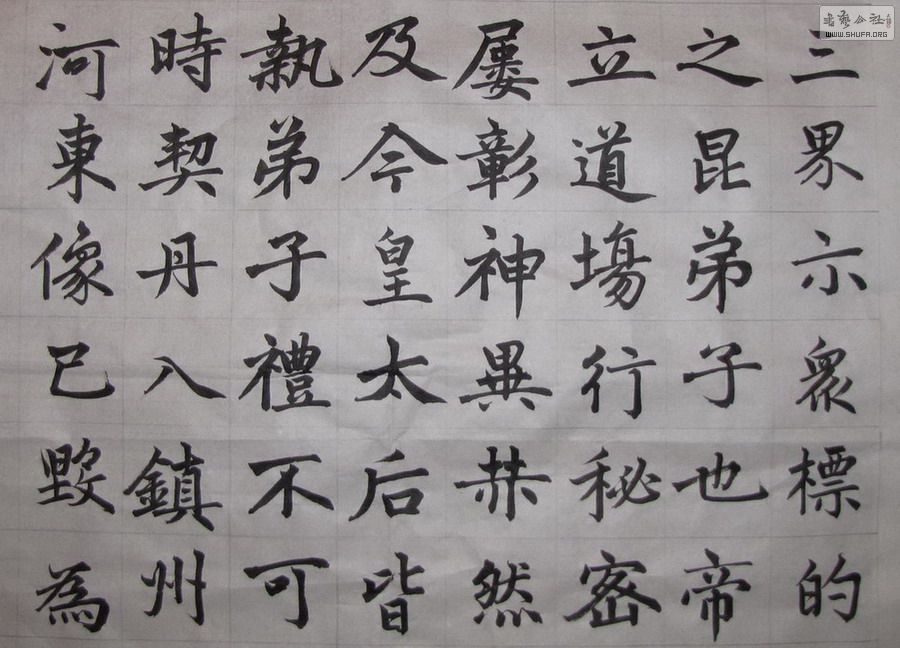 三界示衆標的
之昆弟子也帝
立道塲行秘密
屢彰神異赫然
及今皇太后皆
執弟子禮不可
時契丹入鎮州
河東像已毀為
书艺公社
WWW.SHUFA.ORG